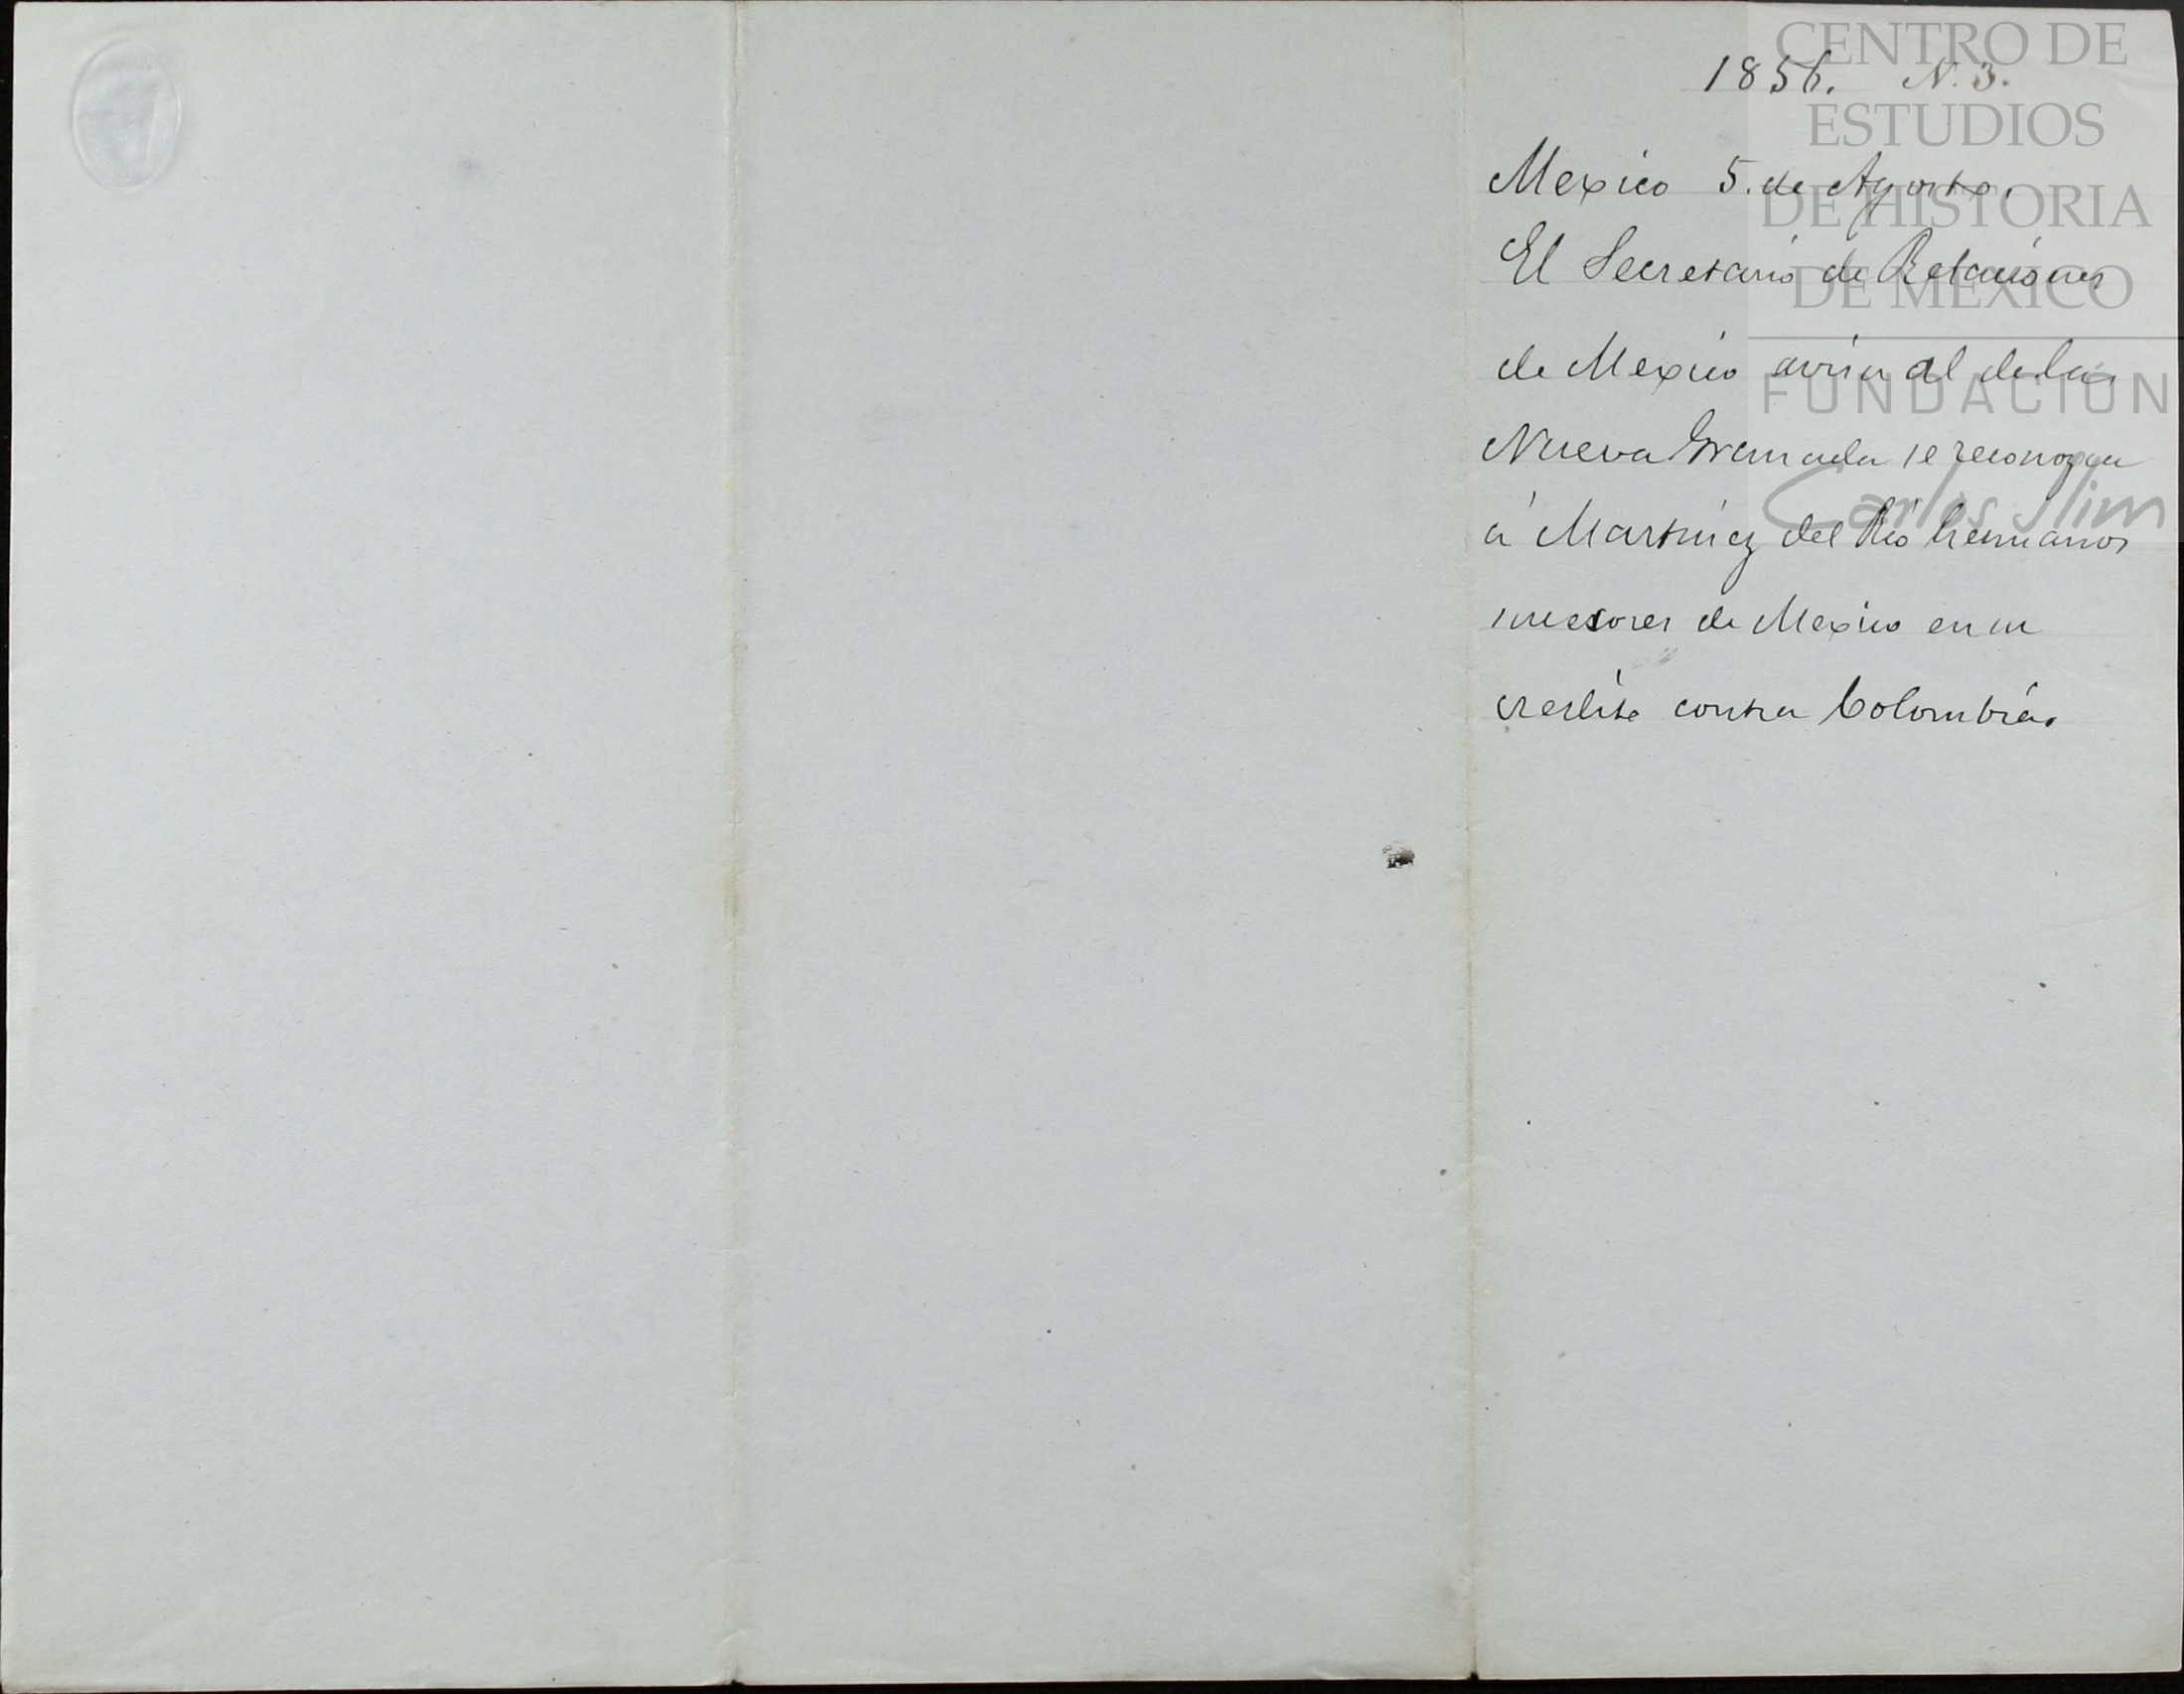 1856. N. 3.
Mexico 5. de Agosto.
El Secretario de Relaciones
de Mexico avisa al de la
Nueva Granada se reconozca
á Martinez del Rio hermanos
sucesores de Mexico en su
credito contra Colombia.
CENTRO DE
ESTUDIOS
DE HISTORIA
DE MÉXICO
FUNDACIÓN
Carlos Slim